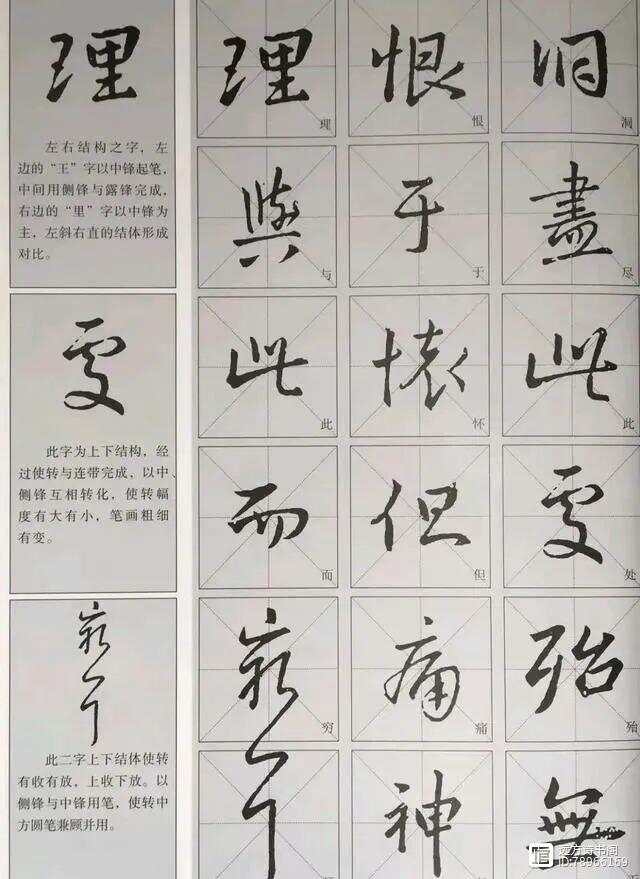 理
左右结构之字，左
边的“王”字以中锋起笔，
中间用侧锋与露锋完成，
右边的“里”字以中锋为
主，左斜右直的结体形成
对比。
處
此字为上下结构，经
过使转与连带完成，以中、
侧锋互相转化，使转幅
度有大有小，笔画粗细
有变。
窮
此二字上下结体使转
有收有放，上收下放。以
侧锋与中锋用笔，使转中
方圆笔兼顾并用。
理 恨 洞
理 恨 洞
與 于 盡
与 于 尽
此 懷 此
此 怀 此
而 但 處
而 但 处
窮 痛 殆
穷 痛 殆
神 無
ID:78966169